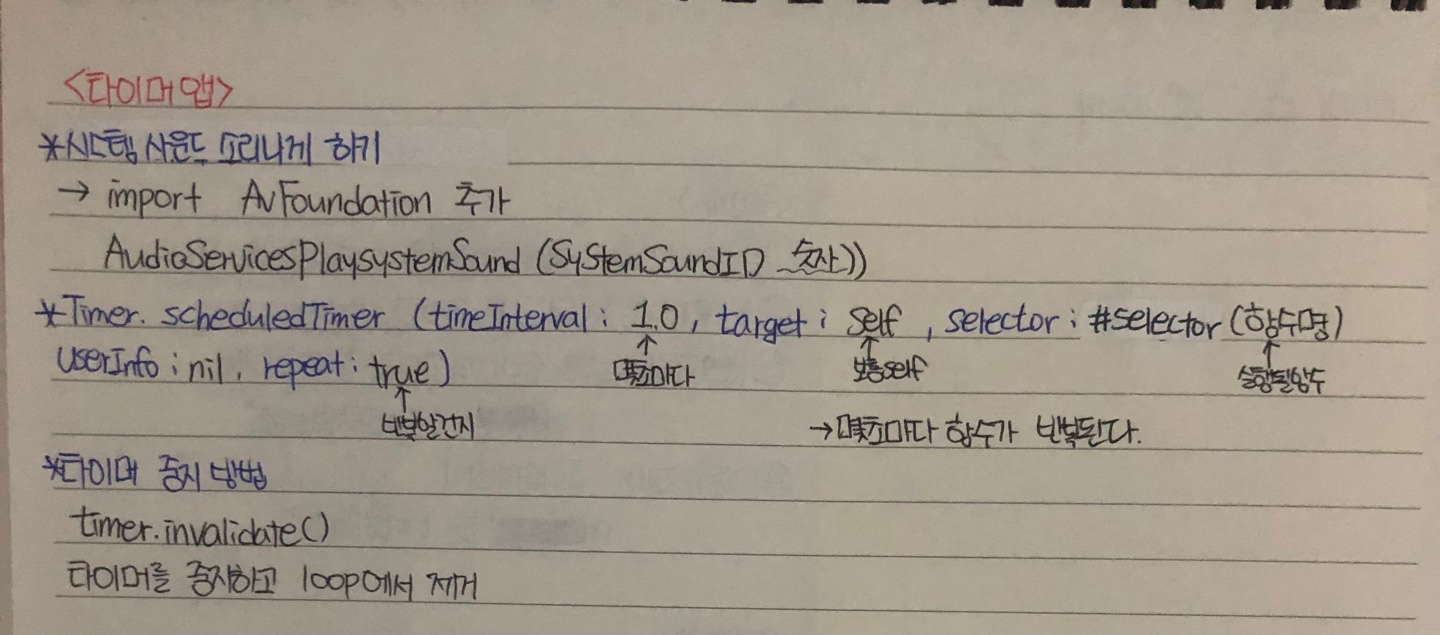 <타이머 앱>
*시스템 사운드 소리나게 하기
→ import AvFoundation 추가
AudioServicesPlaysystemSound (SyStemSoundID 숫자))
*Timer. scheduledTimer (timeInterval : 1.0, target : self , selector : #selector (함수명)
userInfo : nil, repeat : true)
↑ 몇초마다 ↑ 보통 self ↑ 실행될함수
↑ 반복할건지 → 몇초마다 함수가 반복된다.
*타이머 중지 방법
timer.invalidate()
타이머를 중지하고 loop에서 제거